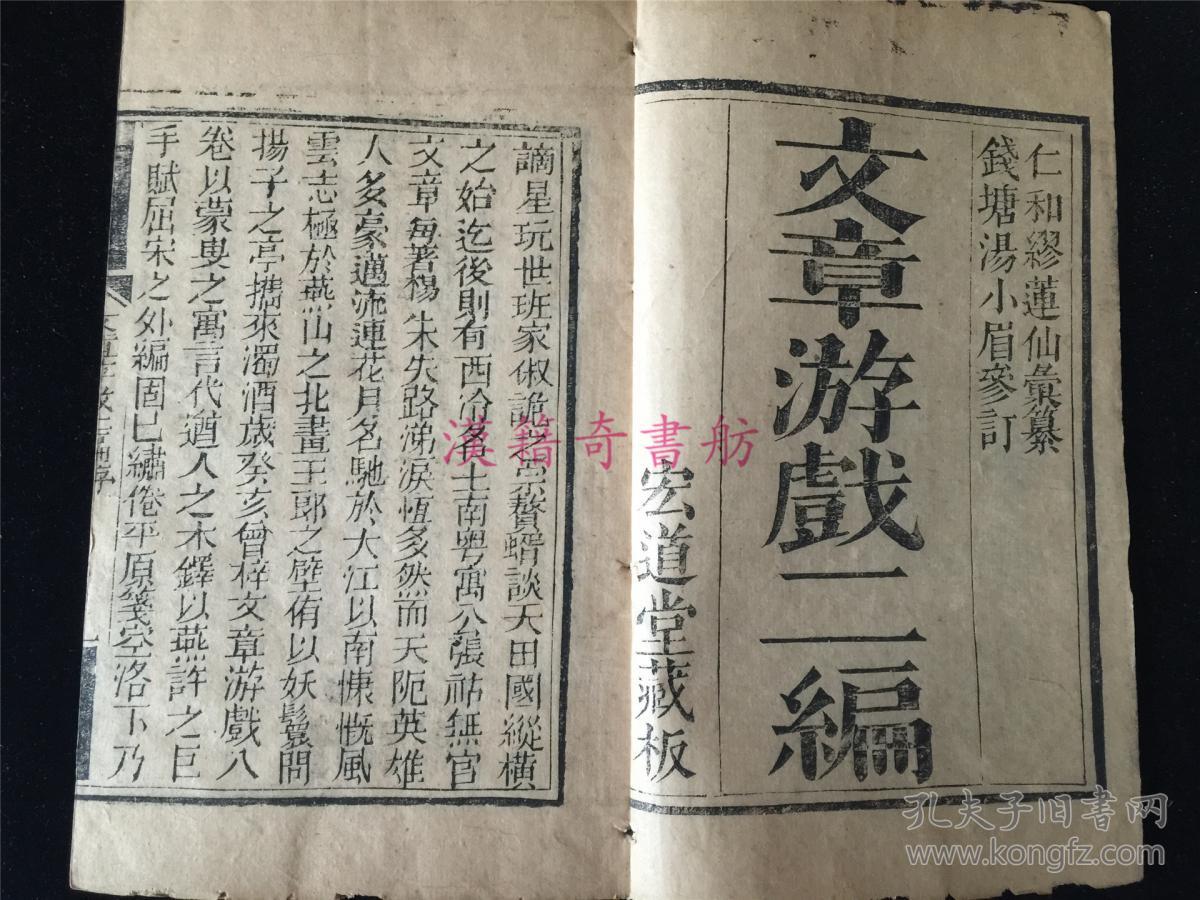 仁和繆蓮仙彙纂
錢塘湯小眉參訂
文章游戲二編
宏道堂藏板
謫星玩世班家俶詭之宗贅壻談天田國縱橫
之始迄後則有西泠名士南粵寓公張祜無官
文章每著楊朱失路涕淚恆多然而天阨英雄
人多豪邁流連花月名馳於大江以南慷慨風
雲志極於燕山之北畫王郎之壁侑以妖鬟問
揚子之亭攜來濁酒歲癸亥曾梓文章游戲八
卷以蒙叟之寓言代遒人之木鐸以燕許之巨
手賦屈宋之外編固已繡倦平原箋空洛下乃
漢籍奇書舫
孔夫子旧书网
www.kongfz.com